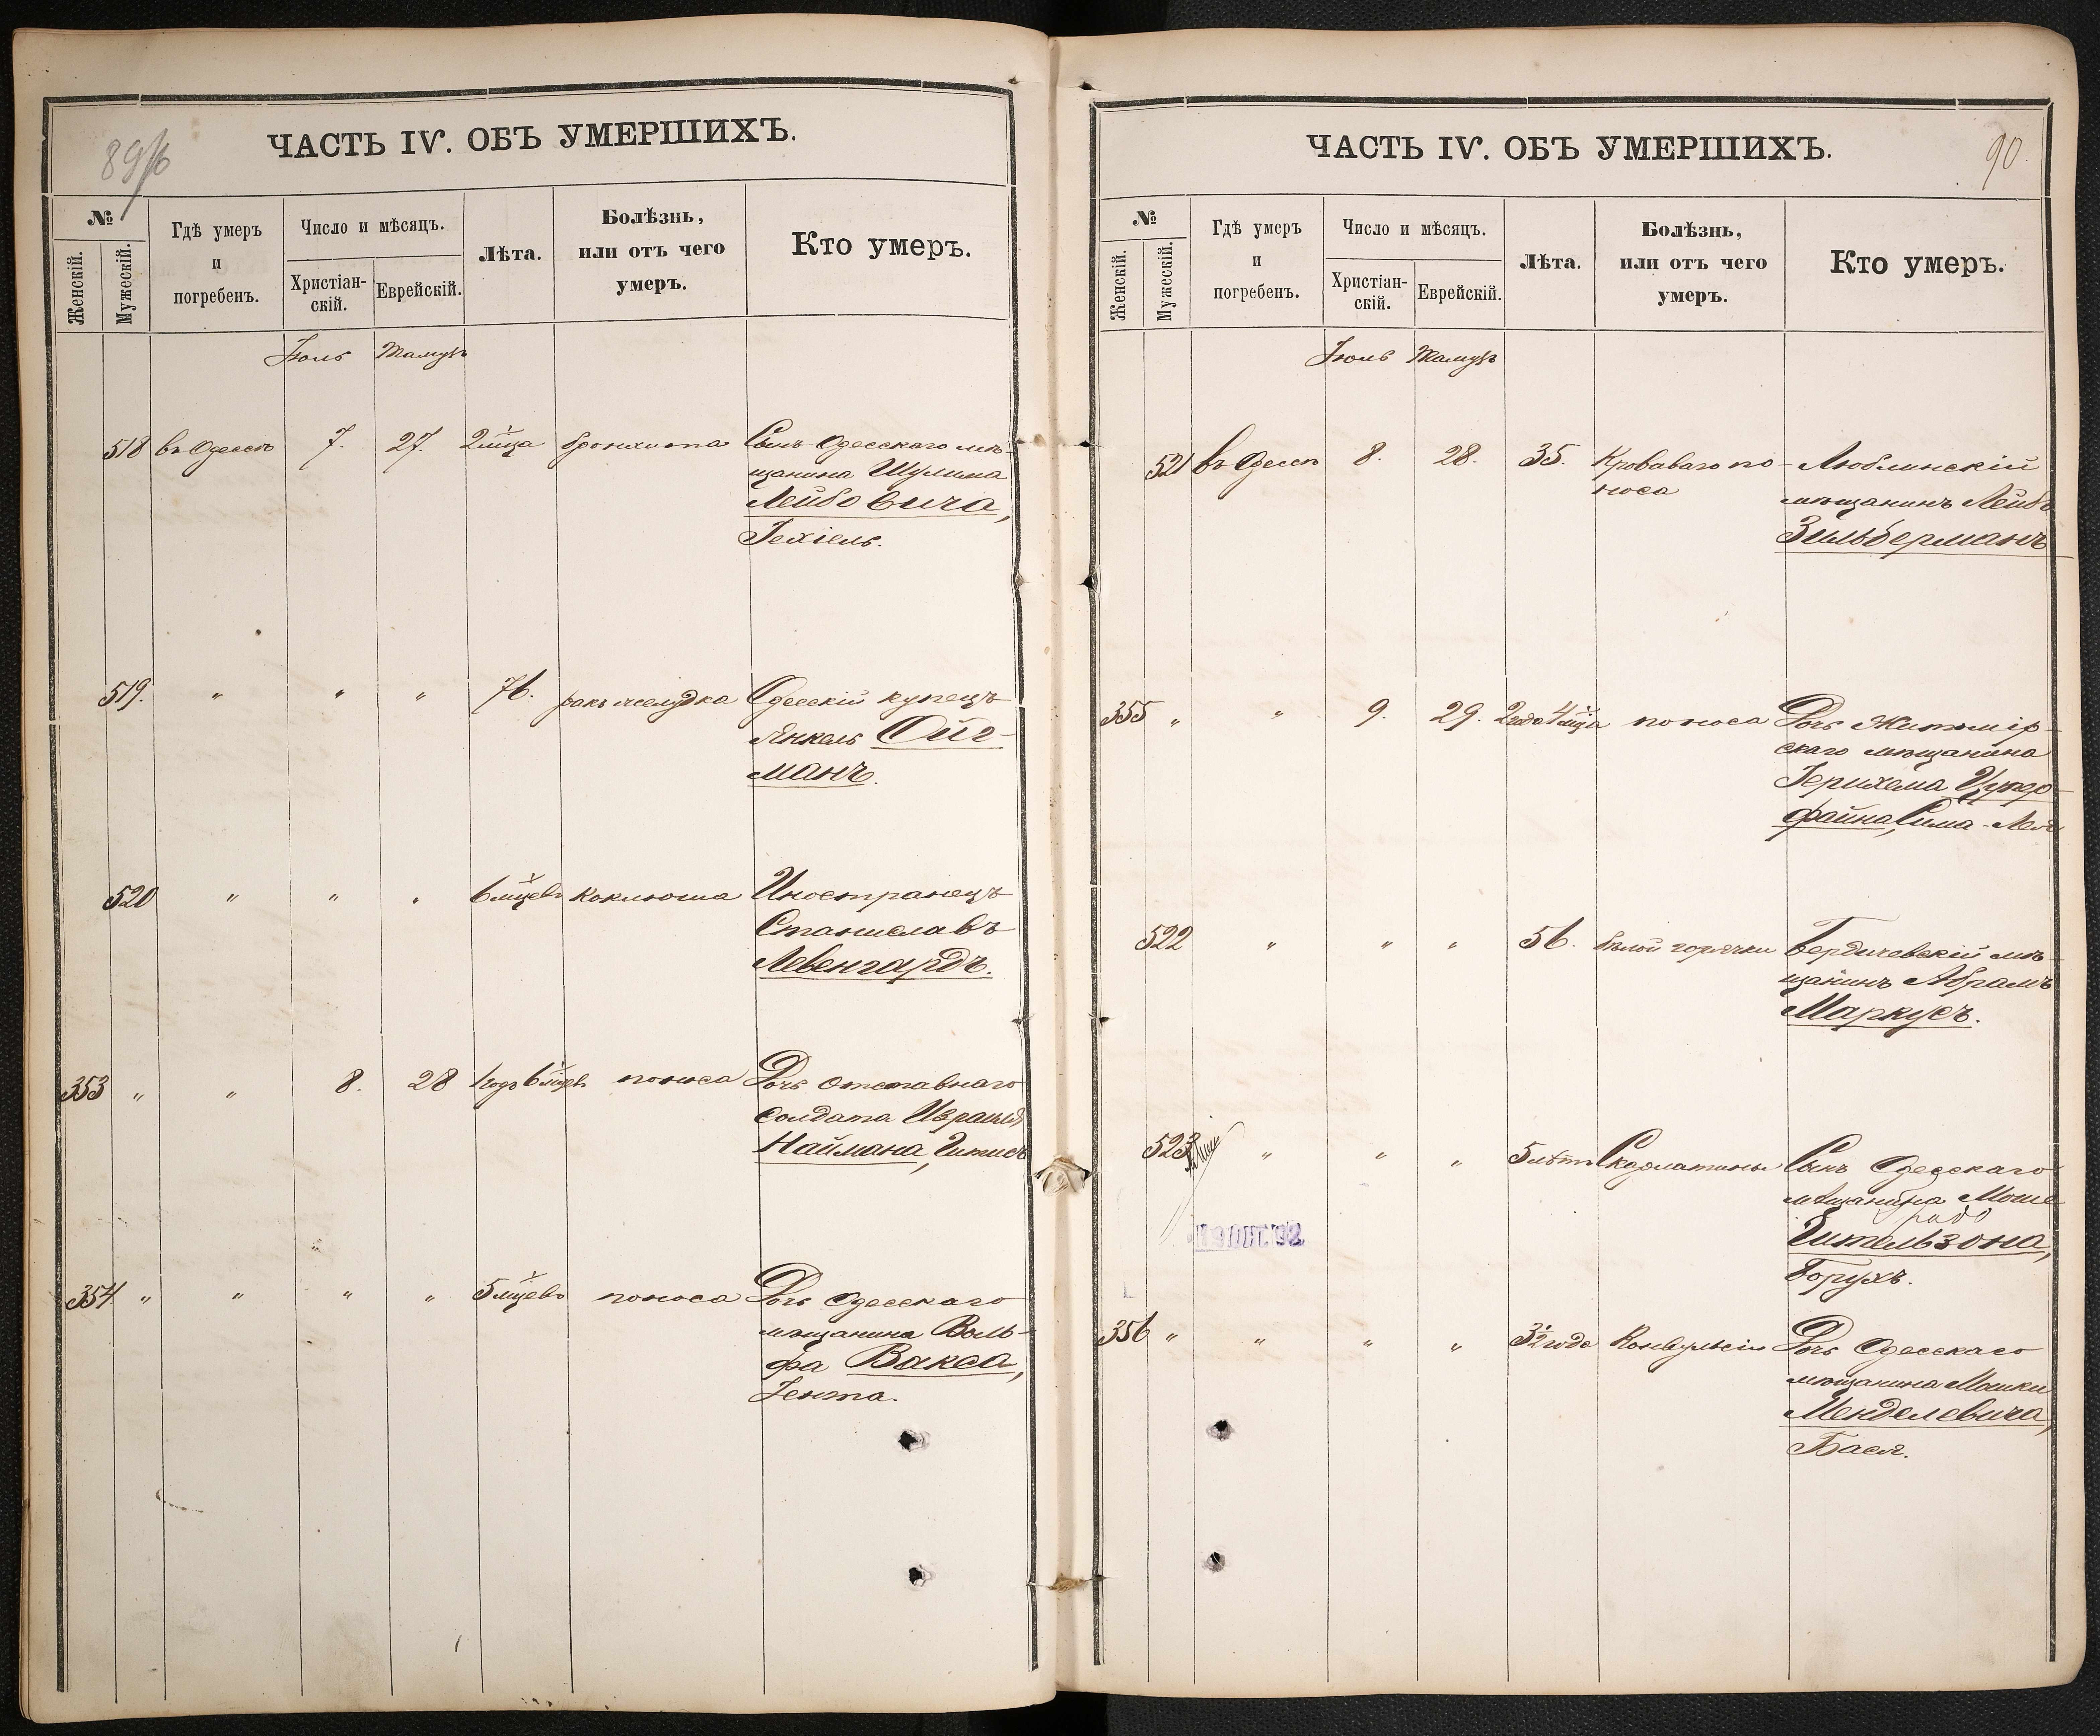 89/6
ЧАСТЬ IV. ОБЪ УМЕРШИХЪ.
№
Женскій.
Мужескій.
Гдѣ умеръ
и
погребенъ.
Число и мѣсяцъ.
Христіан-
скій.
Еврейскій.
Лѣта.
Болѣзнь,
или отъ чего
умеръ.
Кто умеръ.
Іюль Тамузъ
518 въ Одессѣ 7. 27. 2 мца бронхита Сынъ Одесскаго мѣ-
щанина Шулима
Лейбовича,
Іехіель.
519. " " " 76. ракъ желудка Одесскій купецъ
Янкель Ойг-
манъ.
520 " " " 6 мцевъ коклюша Иностранецъ
Станиславъ
Левенгардъ.
353 " " 8. 28 1 годъ 6 мцевъ поноса Дочь отставнаго
солдата Израиля
Наймана, Гитись
354 " " " " 5 мцевъ поноса Дочь Одесскаго
мѣщанина Воль-
фа Вакса,
Іента.
90.
ЧАСТЬ IV. ОБЪ УМЕРШИХЪ.
№
Женскій.
Мужескій.
Гдѣ умеръ
и
погребенъ.
Число и мѣсяцъ.
Христіан-
скій.
Еврейскій.
Лѣта.
Болѣзнь,
или отъ чего
умеръ.
Кто умеръ.
Іюль Тамузъ
521 въ Одессѣ 8. 28. 35. Кроваваго по- Люблинскій
носа мѣщанинъ Лейбъ
Зильберманъ
355 " " 9. 29. 2 года 4 мца поноса Дочь Житомір-
скаго мѣщанина
Іерихема Цукер-
файна, Сима-Лея
522 " " " 56. бѣлой горячки Бердичевскій мѣ-
щанинъ Абрамъ
Маркусъ.
523 " " " 5 лѣтъ Скарлатины Сынъ Одесскаго
мѣщанина Моше
Гительзона,
Борухъ.
356 " " " " 3½ года Конвульсіи Дочь Одесскаго
мѣщанина Мошки
Менделевича,
Бася.